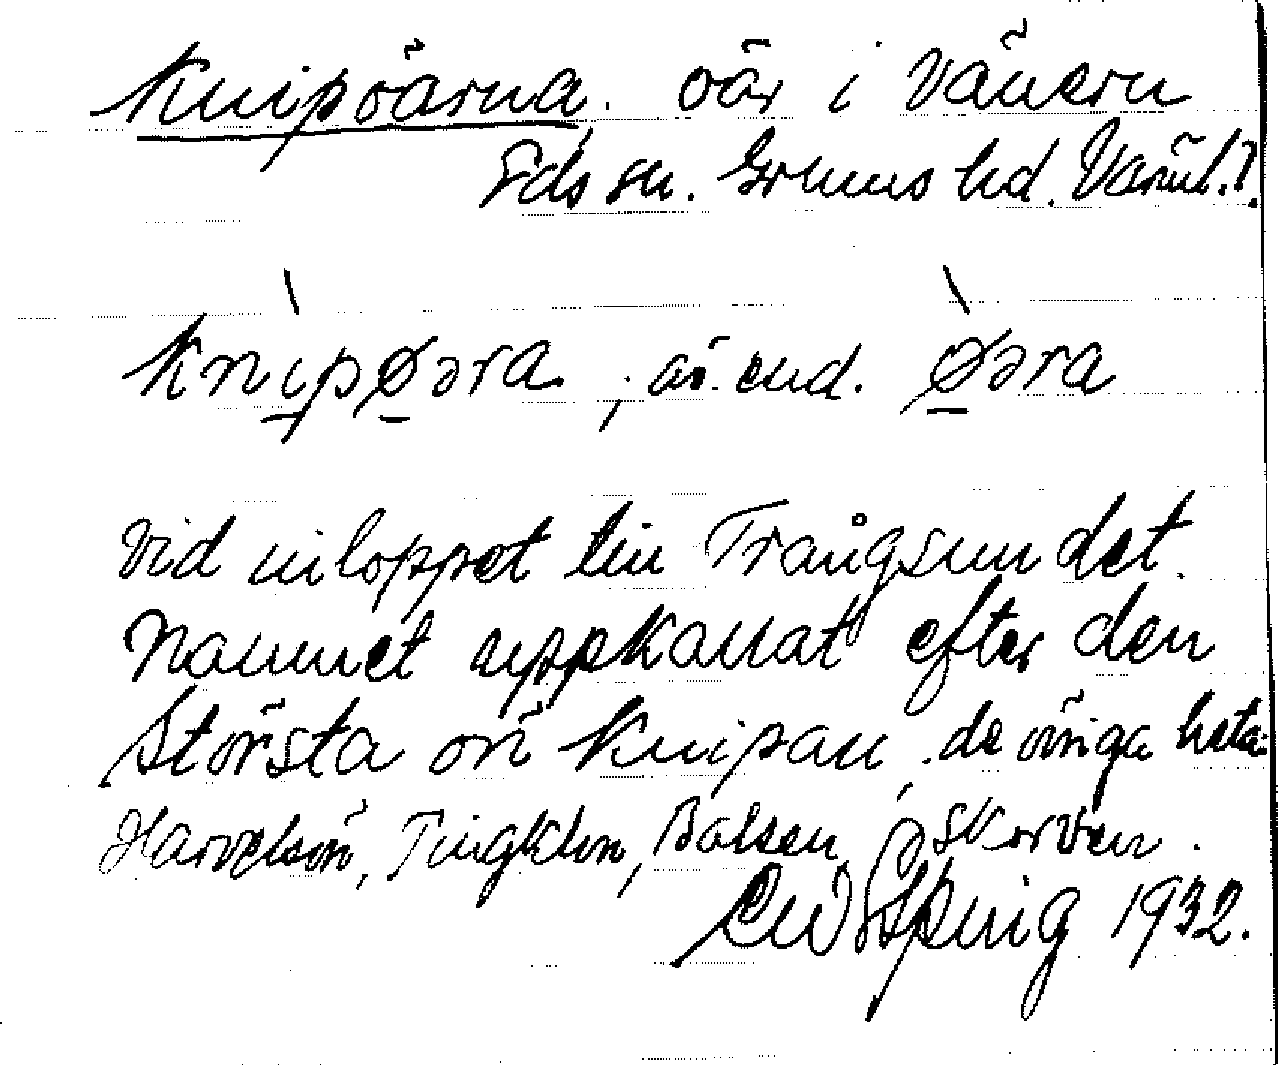 Knipöarna. öar i Vänern
Eds sn. Grums hd. Värml.
Knipøəra, äv. end. Øəra
Vid inloppet till Trångsundet.
Namnet uppkallat efter den
största ön Knipan, de övriga heta
Tingklon, Balsen, Skorven.
1932.